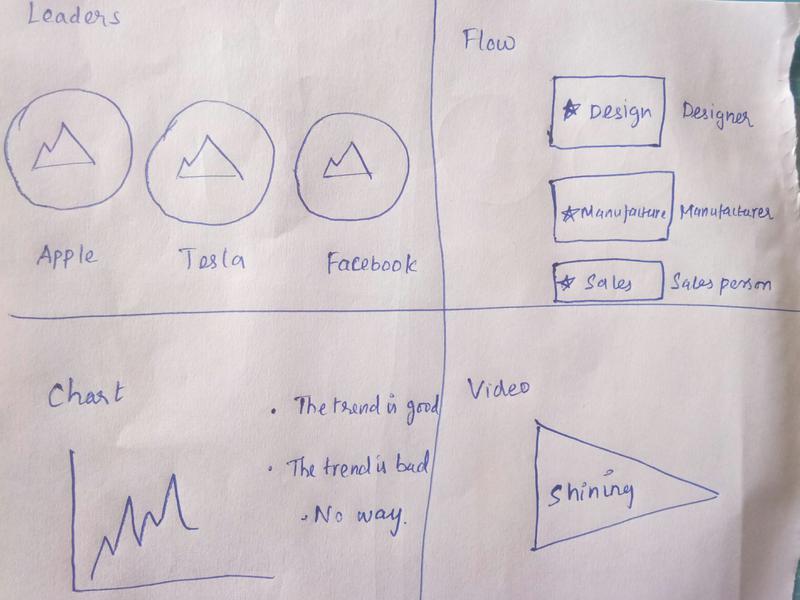 Leaders
Apple
Tesla
Facebook
Flow
Design Designer
Manufacture Manufacturer
Sales Sales person
Chart
• The trend is good
• The trend is bad
• No way.
Video
Shining